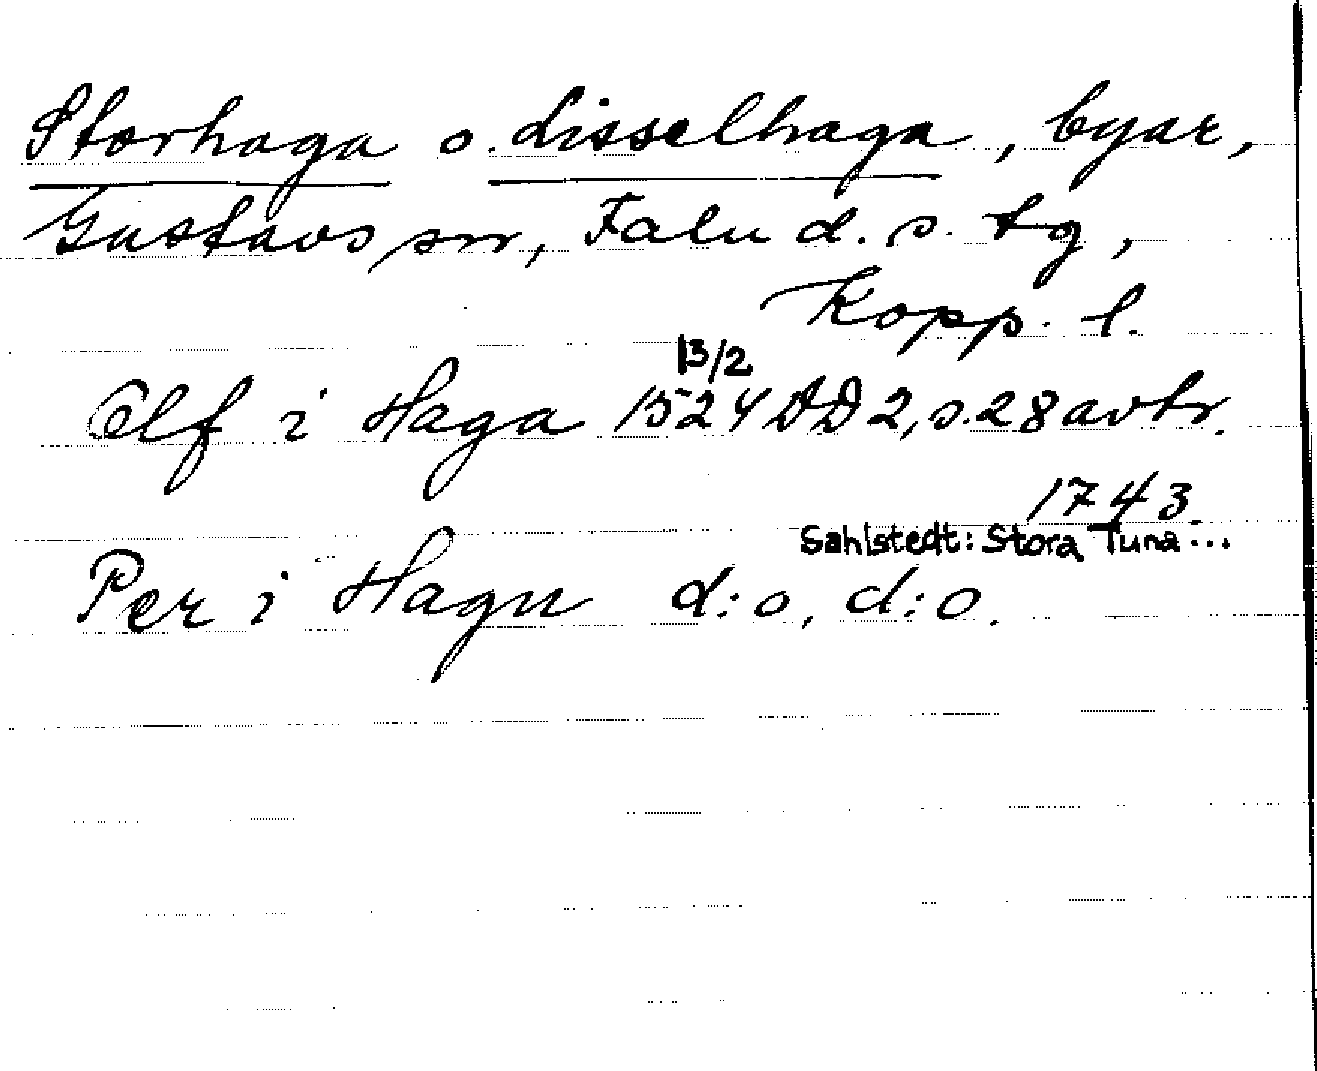 Storhaga o. Lisselhaga, byar,
Gustavs sn, Falu d. s. tg,
Kopp. l.
13/2
Olf i Haga 1524 DD 2, s. 28 avtr.
1743.
Sahlstedt: Stora Tuna...
Per i Hagu d:o, d:o.